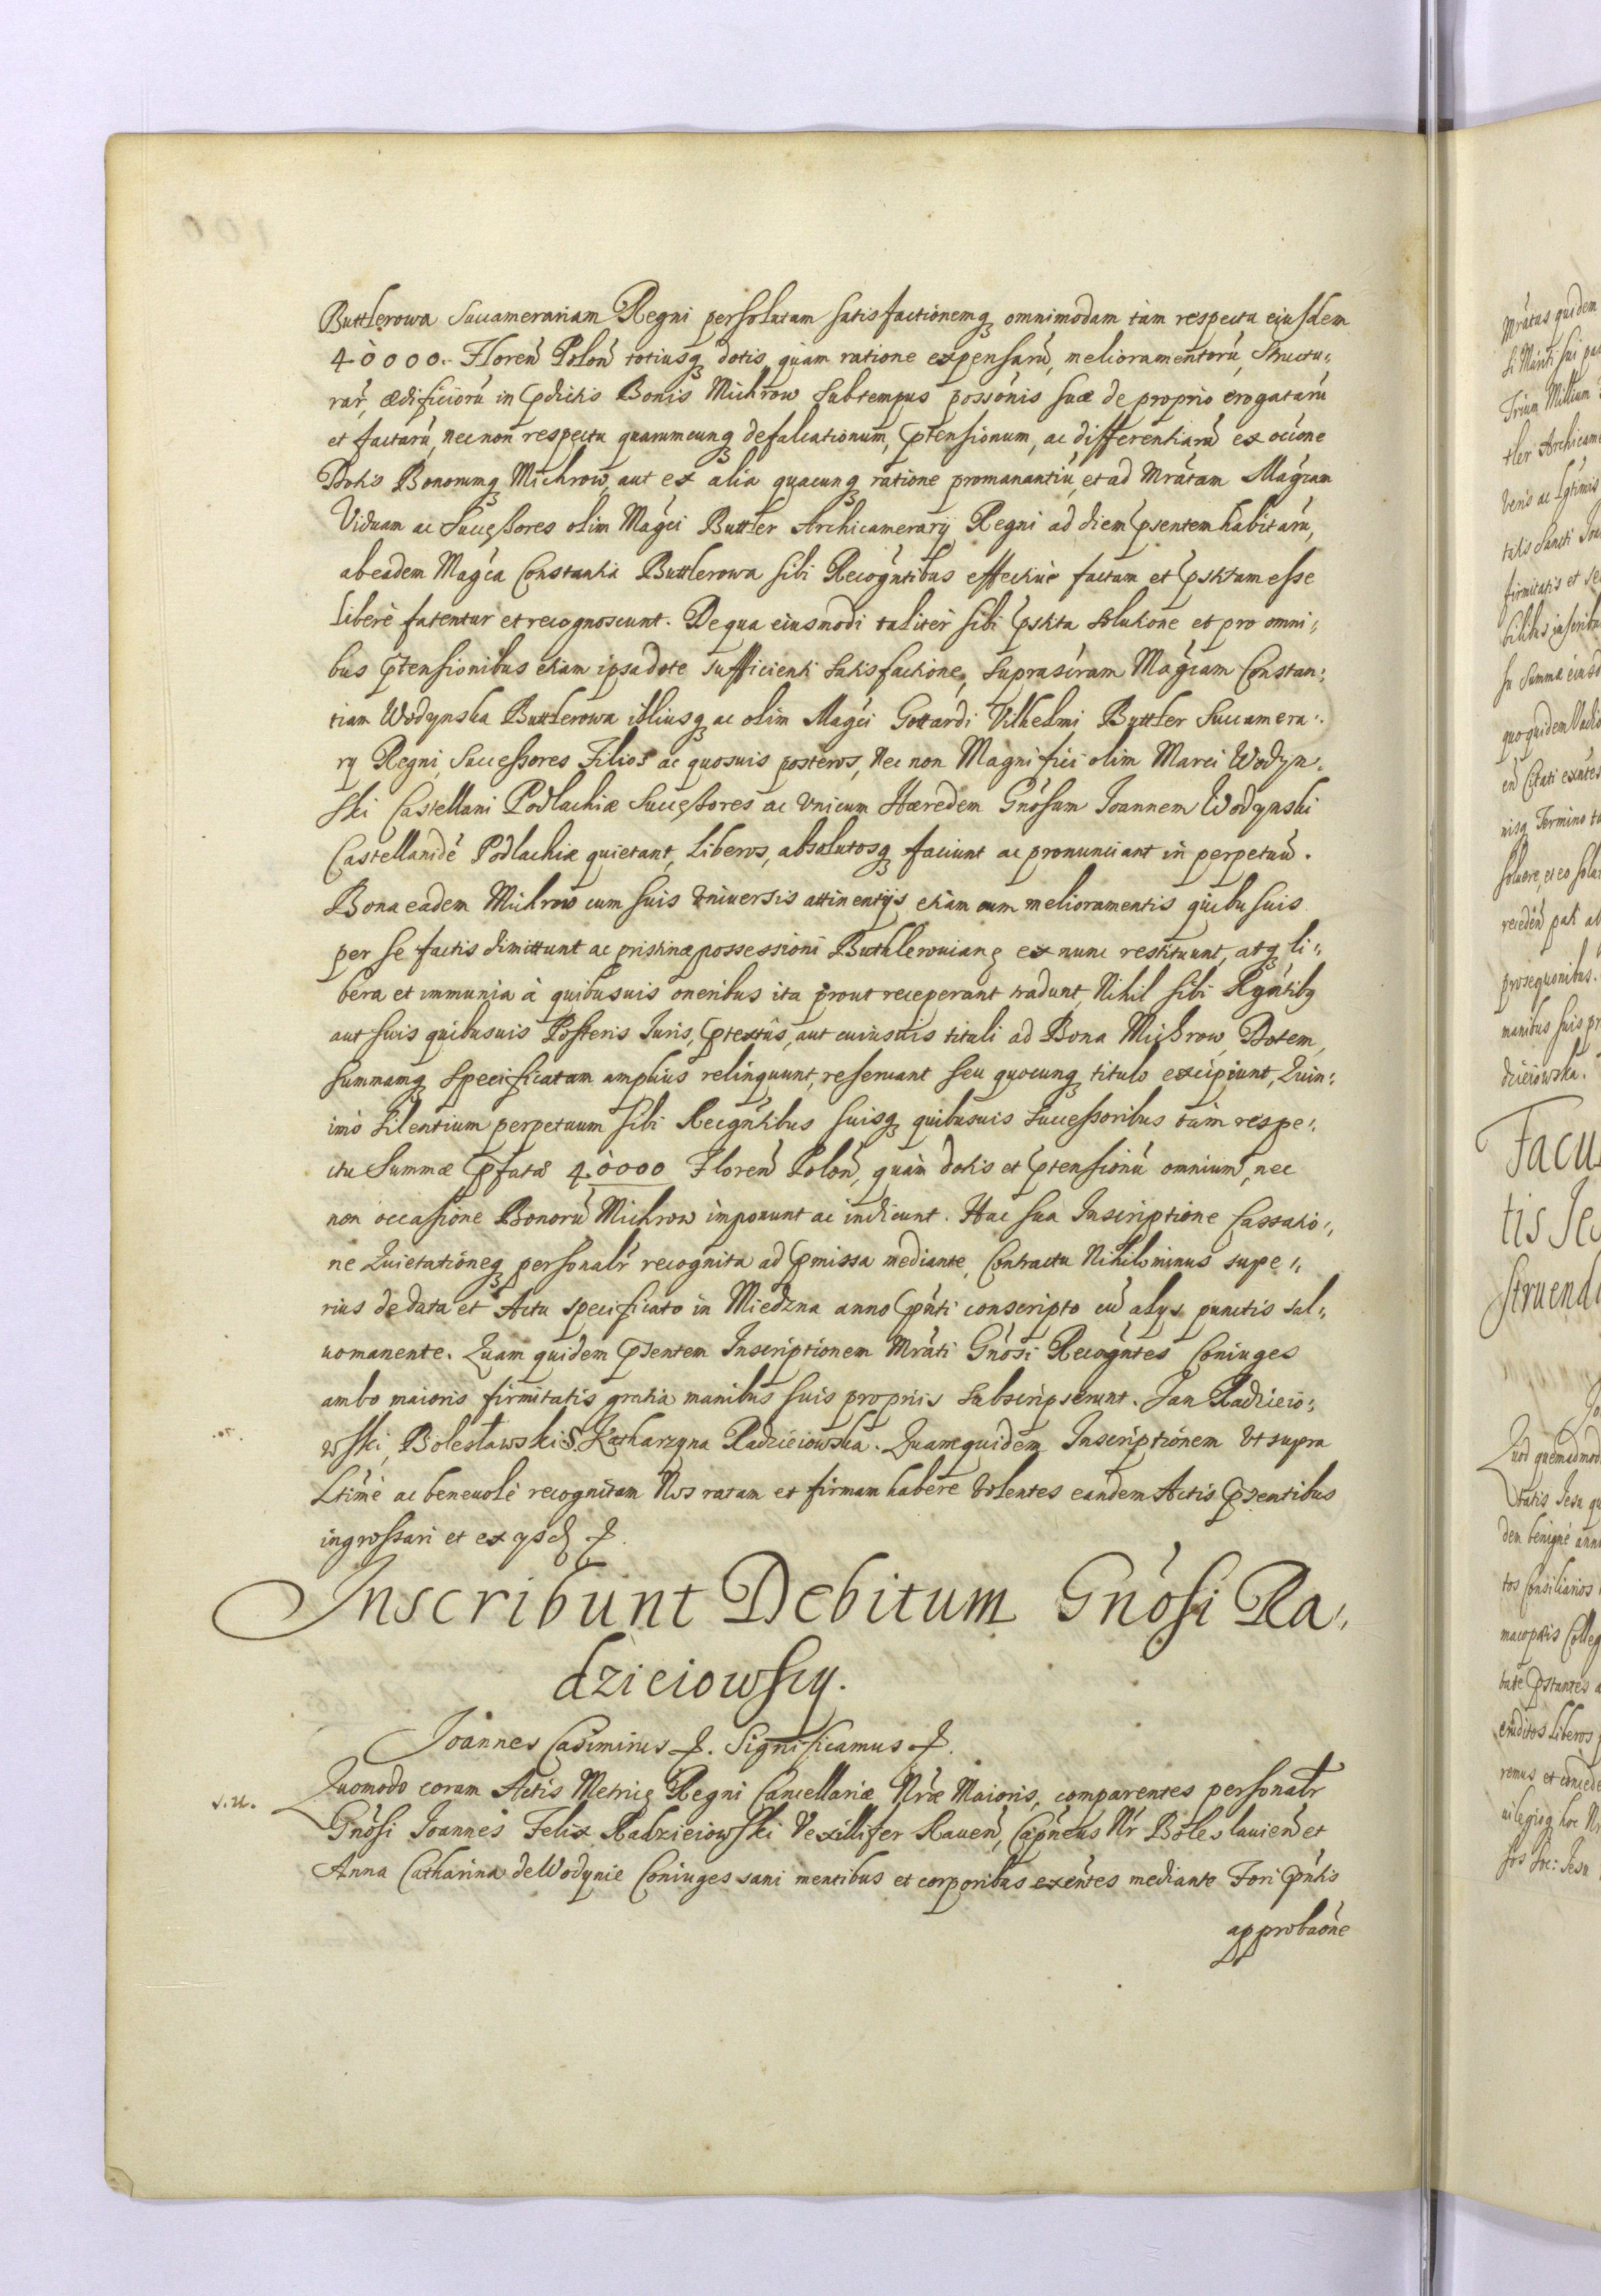 Buttlerowa Succamerariam Regni persolutam satisfactionemq omnimodam tàm respectu eiusdem
40000. Floreñ Poloñ totiusq dotis, quàm ratione expensarũ, melioramentorũ, Structu„
rar, ædificiorũ in pdictis Bonis Michrow sub tempus possonis suæ de proprio erogatarũ
et factarũ, nec non respectu quarumcunq defalcationum, ptensionum, ac differentiarũ ex occõne
Dotis Bonorumq Michrow, aut ex alia quacunq ratione promanantiũ, et ad Mrãtam Magcam
Viduam ac Successores olim Magci Buttler Archicamerarij Regni ad diem psentem habitarũ,
ab eadem Magca Constantia Buttlerowa sibi Recogntibus effectiue factam et pstitam esse
liberè fatentur et recognoscunt. De qua eiusmodi taliter sibi pstita solutione et pro omni„
bus ptensionibus etiam ipsa dote sufficienti satisfactione, suprascram Magcam Constan„
tiam Wodynska Buttlerowa illiusq ac olim Magci Gottardi Vilhelmi Buttler Succamera„
rij Regni, Successores Filios ac quosuis posteros, nec non Magnifici olim Marci Wodyn„
ski Castellani Podlachiæ Successores ac vnicum Hæredem Gnosum Joannem Wodynski
Castellanidẽ Podlachiæ quietant, liberos, absolutosq faciunt ac pronunciant in perpetuũ.
Bona eadem Michrow cum suis vniuersis attinentijs etiam cum melioramentis quibusuis
per se factis dimittunt ac pristinæ possessioni Buthlerouianę ex nunc restituunt, atq li„
bera et immunia à quibusuis oneribus ita prout receperant tradunt, Nihil sibi Rgntibq
aut suis quibusuis Posteris Iuris, ptextûs, aut cuiusuis tituli ad Bona Michrow, Dotem,
summamq specificatam amplius relinquunt, reseruant seu quocunq titulo excipiunt, Quin„
imò silentium perpetuum sibi Recgntibus suisq quibusuis Successoribus tàm respe„
ctu Summæ pfatæ 40000 Floreñ Poloñ, quàm dotis et ptensionũ omnium, nec
non occasione Bonorũ Michrow imponunt ac indicunt. Hac sua Inscriptione Cassatio„
ne Quietationeq personalr recognita ad pmissa mediante, Contractu Nihilominus supe„
rius de data et Actu specificato in Miedzna anno pnti conscripto cũ alys punctis sal„
uo manente. Quam quidem psentem Inscriptionem Mrati Gnosi Recogntes Coniuges
ambo maioris firmitatis gratia manibus suis proprijs subscripserunt. Jan Radzieio„
wski, Bolesławski S. Katharzyna Radzieiowska. Quam quidem Inscriptionem vt supra
Ltimè ac beneuolè recognitam Nos ratam et firmam habere volentes eandem Actis psentibus
ingrossari et ex ysd
Inscribunt Debitum Gnosi Ra„
dzieiowscy.
Joannes Casimirus. Significamus.
Quomodo coram Actis Metricę Regni Cancellariæ Nræ Maioris, comparentes personalr
Gnosi Joannes Felix Radzieiowski Vexillifer Raueñ, Capneus Nr Boleslauieñ et
Anna Catharina de Wodynie Coniuges sani mentibus et corporibus exentes mediante Fori pntis
approbaone